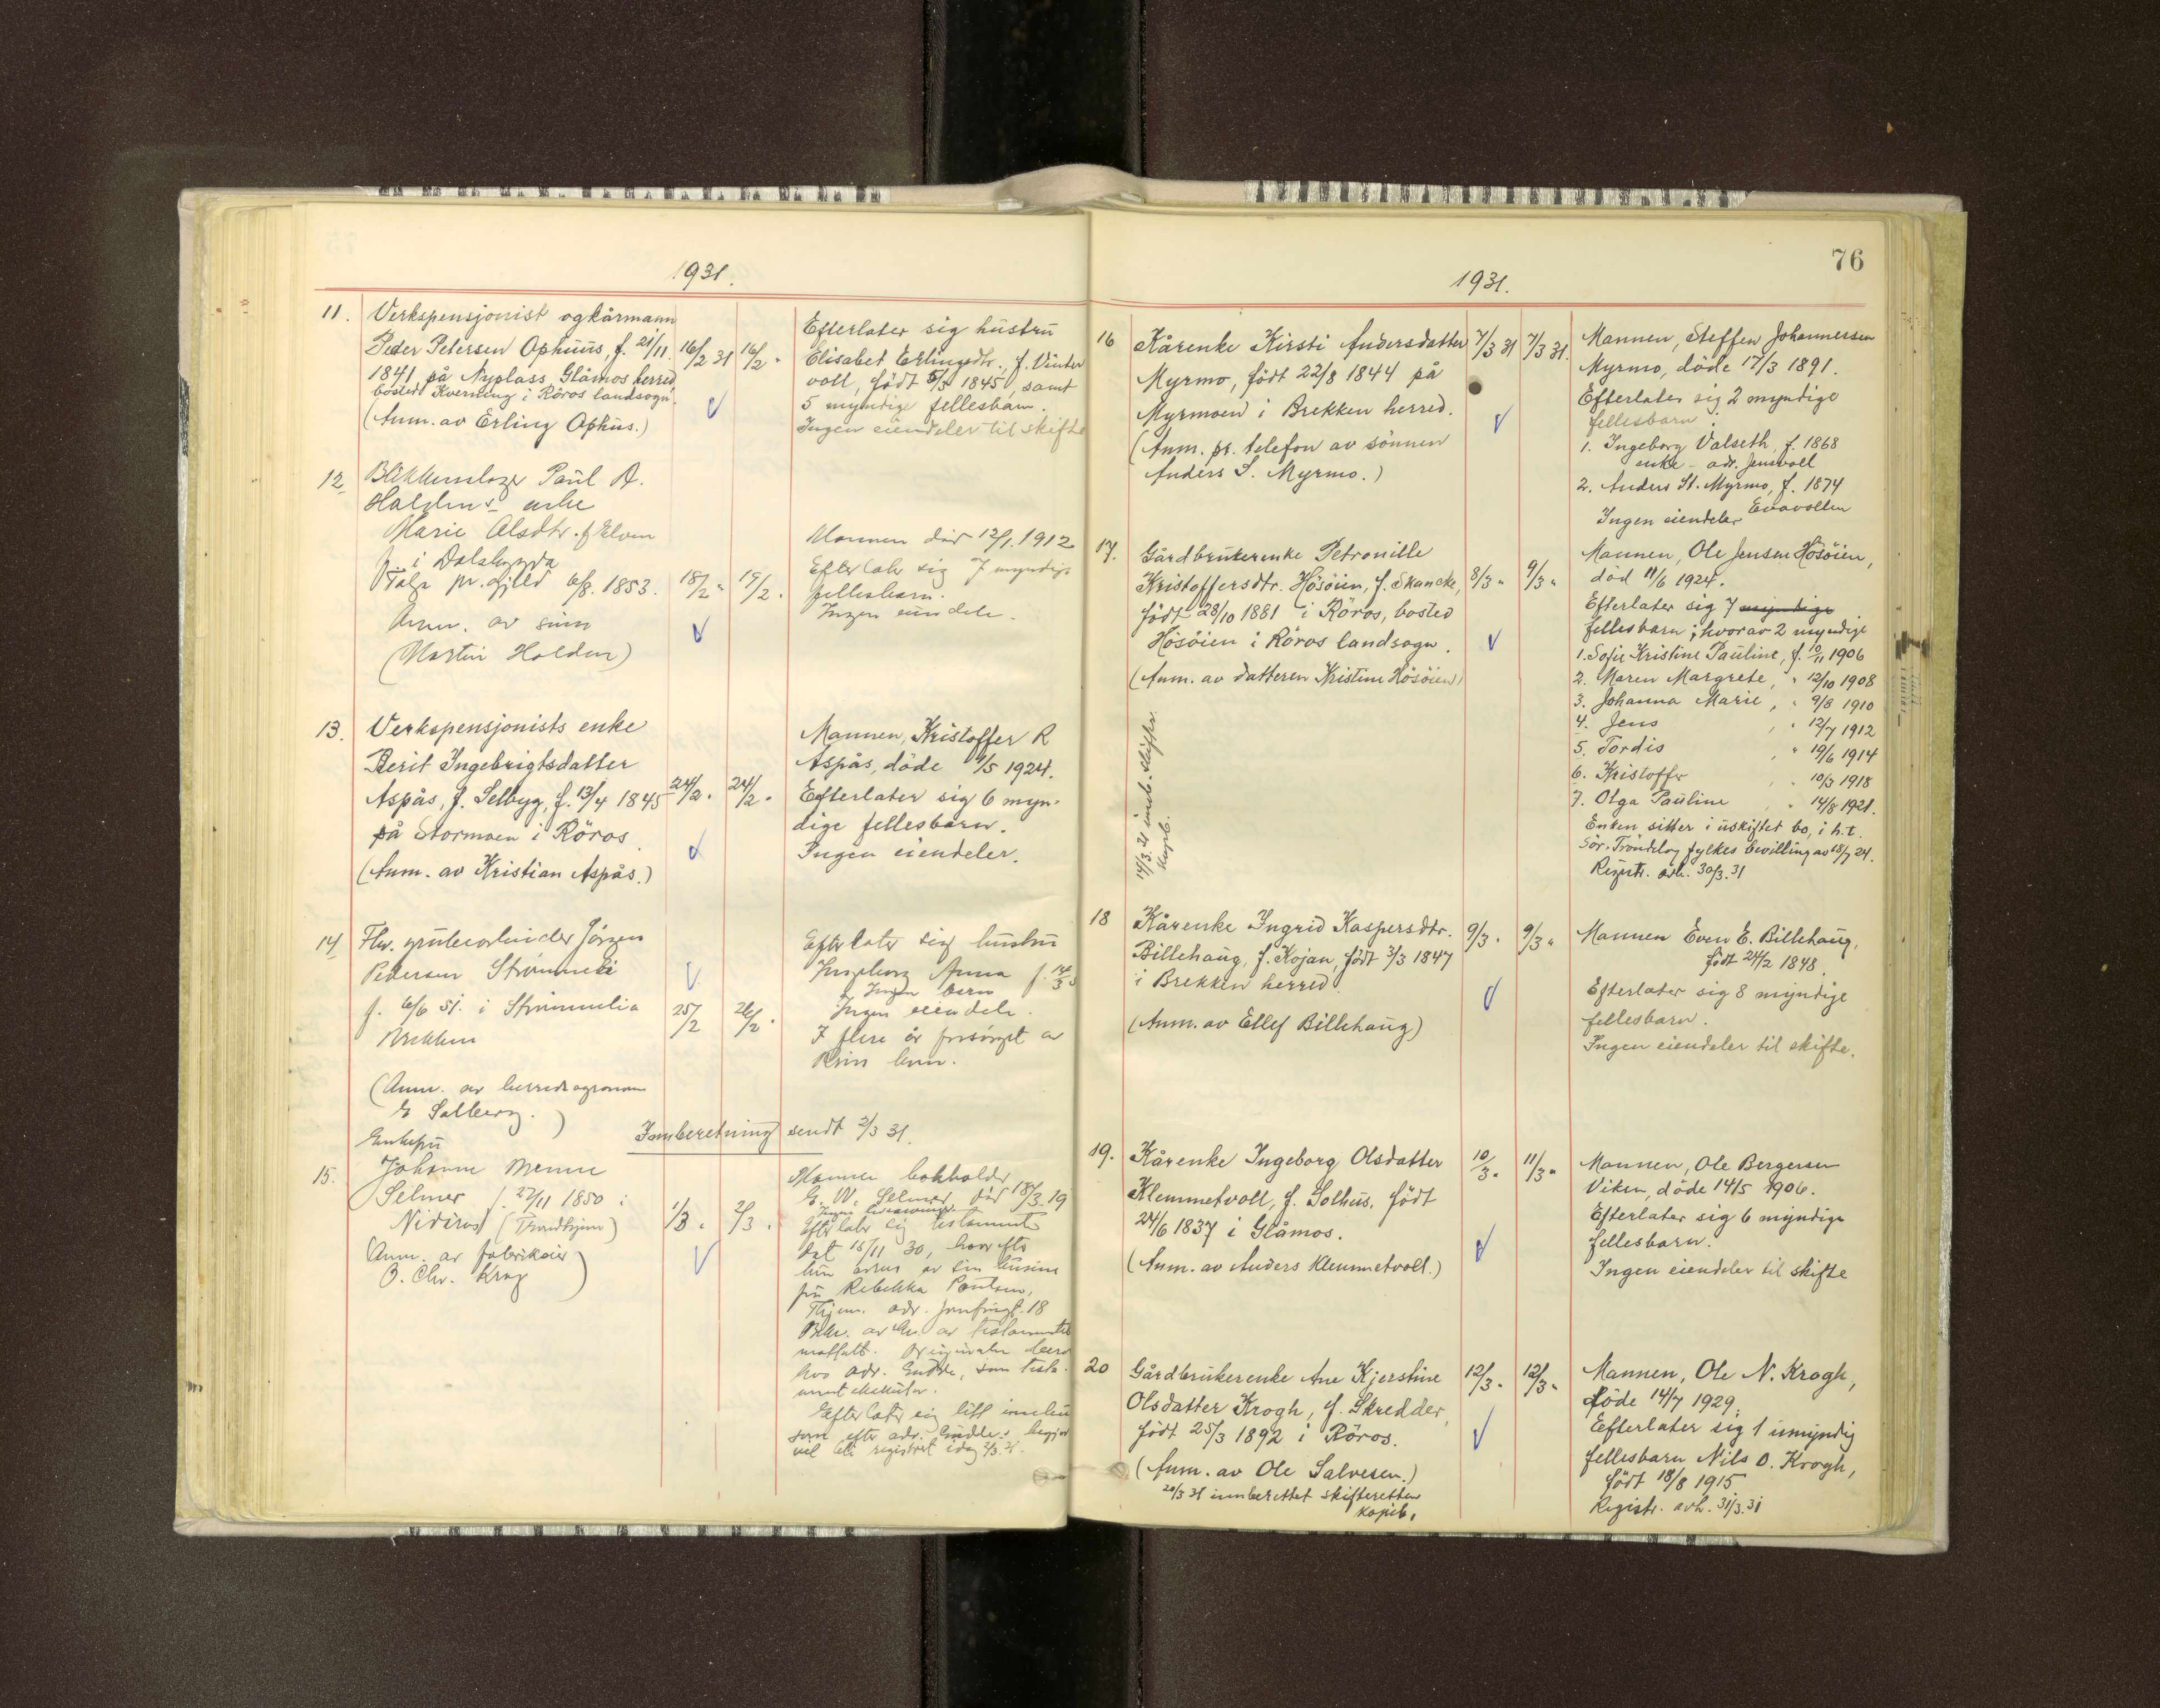 1931.
11.
Verkspensjonist og kårmann
Peder Petersen Ophuus, f. 21/11
1841 på Nyplass Glåmos herred,
bosted Kverneng i Röros landsogn.
(Anm. av Erling Ophus.)
16/2 31
16/2 "
Efterlater sig hustru
Elisabet Erlingsdtr., f. Vinter
voll, født 5/3 1845, samt
5 myndige fellesbarn.
Ingen eiendeler til skifte
12.
Blikkenslager Paul A.
Holdens enke
Marie Olsdtr. f. Elven
f. i Dalsbygda
Tolga pr.gjeld 6/8. 1853.
Anm. av sönn
(Martin Holden)
18/2 "
19/2 "
Mannen död 12/1. 1912
Efterlater sig 7 myndige
fellesbarn.
Ingen eiendele.
13.
Verkspensjonists enke
Berit Ingebrigtsdatter
Aspås, f. Selbyg, f. 13/4 1845
på Stormoen i Röros.
(Anm. av Kristian Aspås.)
24/2 "
24/2 "
Mannen, Kristoffer R
Aspås, döde 9/5 1924.
Efterlater sig 6 myn-
dige fellesbarn.
Ingen eiendeler.
14
Fhv. grubearbeider Jörgen
Pedersen Strömmeli
f. 6/6 51. i Strömmelia
Brekken
(Anm. av herredsagronom
E Solberg.)
25/2
26/2 "
Efterlater sig hustru
Ingeborg Anna f. 14/3
Ingen barn
Ingen eiendele.
I flere år forsörget av
Innberetning sendt 2/3 31.
15.
Enkefru
Johanne
Selmer f. 27/11 1850 i
Nidaros (Trondhjem)
Anm. av fabrikeier
O. Chr. Krog
1/3 "
2/3 "
Mannen bokholder
G. W. Selmer, död 18/3.19
Ingen livsarvinger
Efterlater sig testament
dat 15/11 30, hvorefter
hun arves av sin kusine
fru Rebekka Poulsen,
Thjem. adr. Jomfrugt. 18
Bekr. av av testamentet
mottatt. Originalen beror
hos adv. Gudde, som testa-
ment eksekutor.
Efterlater sig litt innbu
som efter adv. Guddes begjær
vil bli registrert idag 2/3.31.
76
1931.
16
Kårenke Kirsti Andersdatter
Myrmo, født 22/8 1844 på
Myrmoen i Brekken herred.
(Anm. pr. telefon av sönnen
Anders S. Myrmo.)
7/3 31
7/3 31.
Mannen, Steffen Johannessen
Myrmo, döde 17/3 1891.
Efterlater sig 2 myndige
fellesbarn.
1. Ingeborg Valseth, f. 1868
enke - adr. Jensvoll
2. Anders St. Myrmo, f. 1874
Evavollen
Ingen eiendeler
17.
Gårdbrukerenke Petronille
Kristoffersdtr. Hösöien, f. Skancke,
født 28/10 1881 i Röros, bosted
Hösöien i Röros landsogn.
(Anm. av datteren Kristine Hösöien)
14/3. 31 innb. skifter.
Kopib.
8/3 "
9/3 "
Mannen, Ole Jensen Hösöien,
död 11/6 1924.
Efterlater sig 7 myndige
fellesbarn; hvorav 2 myndige
1. Sofie Kristine Pauline, f. 10/11 1906
2. Maren Margrete, " 12/10 1908
3. Johanna Marie, " 9/8 1910
4. Jens, " 12/7 1912
5. Tordis, " 19/6 1914
6. Kristoffer, " 10/3 1918
7. Olga Pauline, " 14/8 1921.
Enken sitter i uskiftet bo, i h.t.
Sör-Tröndelag fylkes bevilling av 18/7 24.
Registr. avh. 30/3.31
18
Kårenke Ingrid Kaspersdtr.
Billehaug, f. Kojan, født 3/3 1847
i Brekken herred.
(Anm. av Ellef Billehaug)
9/3 "
9/3 "
Mannen Even E. Billehaug,
født 24/2 1848.
Efterlater sig 8 myndige
fellesbarn.
Ingen eiendeler til skifte.
19.
Kårenke Ingeborg Olsdatter
Klemmetvoll, f. Solhus, født
24/6 1837 i Glåmos.
(Anm. av Anders Klemmetvoll.)
10/3 "
11/3 "
Mannen, Ole Bergersen
Viken, döde 14/5 1906.
Efterlater sig 6 myndige
fellesbarn.
Ingen eiendeler til skifte
20
Gårdbrukerenke Ane Kjerstine
Olsdatter Krogh, f. Skredder,
født 25/3 1892 i Röros.
(Anm. av Ole Salvesen.)
20/3 31 innberettet skifteretten
Kopib.
12/3 "
12/3 "
Mannen, Ole N. Krogh,
döde 14/7 1929.
Efterlater sig 1 umyndig
fellesbarn Nils O. Krogh,
født 18/8 1915
Registr. avh. 31/3.31